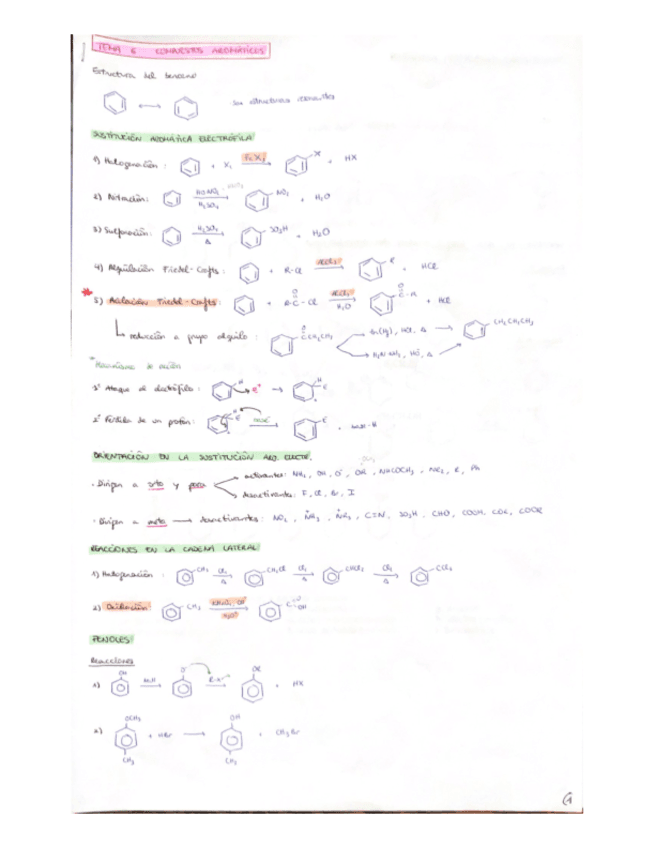 TEMA 6 COMPUESTOS AROMÁTICOS
Estructura del benceno
Son estructuras resonantes
SUSTITUCIÓN AROMÁTICA ELECTRÓFILA
1) Halogenación: + X₂ FeX₃ X + HX
2) Nitración: HONO₂ H₂SO₄ NO₂ + H₂O
3) Sulfonación: H₂SO₄ Δ SO₃H + H₂O
4) Alquilación Friedel-Crafts: + R-Cl AlCl₃ R + HCl
5) Acilación Friedel-Crafts: + R-C-Cl O AlCl₃ H₂O C-R O + HCl
reducción a grupo alquilo: CCH₂CH₃ O Zn(Hg), HCl, Δ CH₂CH₂CH₃
H₂N-NH₂, HO⁻, Δ
1º Ataque al electrófilo: H E⁺ H E
2º Pérdida de un protón: H E base E + base-H
ORIENTACIÓN EN LA SUSTITUCIÓN ARO. ELECTF.
· Dirigen a orto y para activantes: NH₂, OH, O⁻, OR, NHCOCH₃, NR₂, R, Ph
desactivantes: F, Cl, Br, I
· Dirigen a meta desactivantes: NO₂, NH₃, NR₃, C≡N, SO₃H, CHO, COOH, COR, COOR
REACCIONES EN LA CADENA LATERAL
1) Halogenación: CH₃ Cl₂ Δ CH₂Cl Cl₂ Δ CHCl₂ Cl₂ Δ CCl₃
2) Oxidación: CH₃ KMnO₄, OH⁻ H₃O⁺ C O OH
FENOLES
Reacciones
1) OH NaH O⁻ R-X OR + HX
2) OCH₃ CH₃ + HBr OH CH₃ + CH₃Br
1